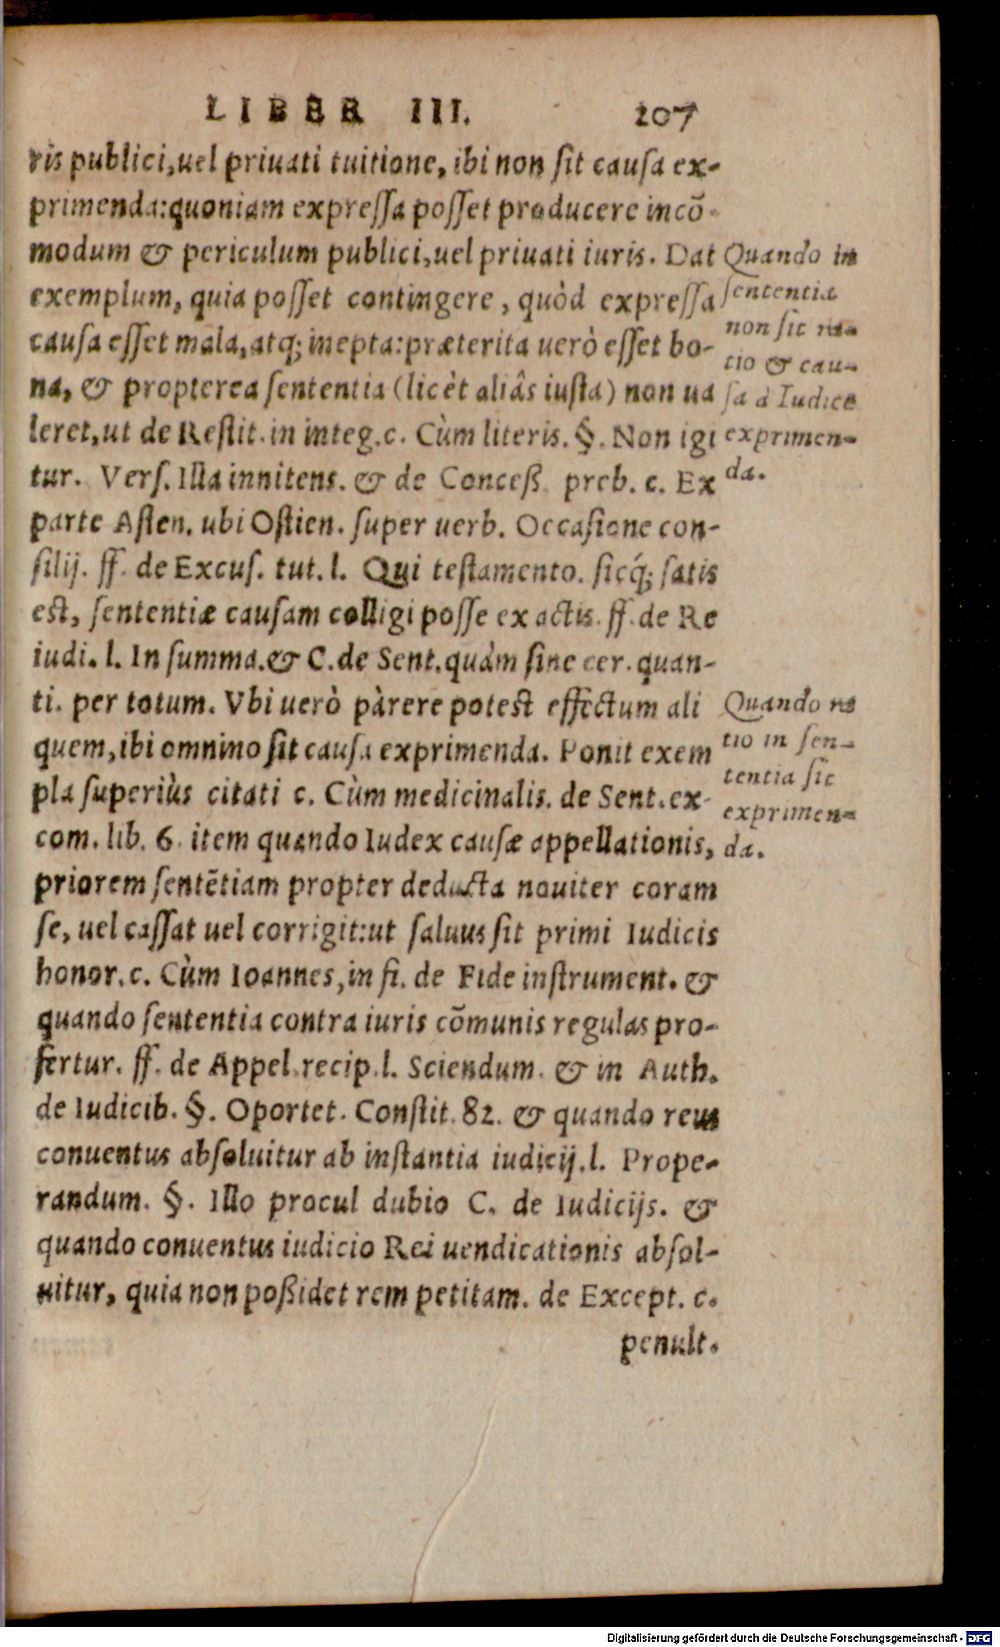 LIBER III. 207
ris publici, uel priuati tuitione, ibi non sit causa ex-
primenda: quoniam expressa posset producere incõ-
modum & periculum publici, uel priuati iuris. Dat
exemplum, quia posset contingere, quòd expressa
causa esset mala, atq; inepta: præterita uerò esset bo-
na, & propterea sententia (licèt aliâs iusta) non ua
leret, ut de Restit. in integ. c. Cùm literis. §. Non igi
tur. Vers. Illa innitens. & de Conceß. preb. c. Ex
parte Asten. ubi Ostien. super uerb. Occasione con-
silij. ff. de Excus. tut. l. Qui testamento. sicq́; satis
est, sententiæ causam colligi posse ex actis. ff. de Re
iudi. l. In summa. & C. de Sent. quàm sine cer. quan-
ti. per totum. Vbi uerò pàrere potest effectum ali
quem, ibi omnino sit causa exprimenda. Ponit exem
pla superiùs citati c. Cùm medicinalis. de Sent. ex-
com. lib. 6. item quando Iudex causæ appellationis,
priorem sentẽtiam propter deducta nouiter coram
se, uel cassat uel corrigit: ut saluus sit primi Iudicis
honor. c. Cùm Ioannes, in fi. de Fide instrument. &
quando sententia contra iuris cõmunis regulas pro-
fertur. ff. de Appel. recip. l. Sciendum. & in Auth.
de Iudicib. §. Oportet. Constit. 82. & quando reus
conuentus absoluitur ab instantia iudicij. l. Prope-
randum. §. Illo procul dubio C. de Iudicijs. &
quando conuentus iudicio Rei uendicationis absol-
uitur, quia non poßidet rem petitam. de Except. c.
penult.
Quando in
sententia
non sit ra-
tio & cau-
sa à Iudice
exprimen-
da.
Quando ra
tio in sen-
tentia sit
exprimen-
da.
Digitalisierung gefördert durch die Deutsche Forschungsgemeinschaft - DFG